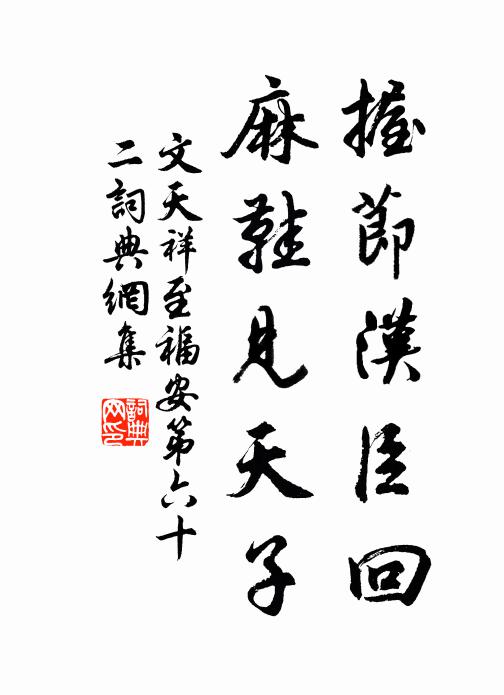 握節漢臣回
麻鞋見天子
文天祥至福安第六十
二詞典網集
詞典網印